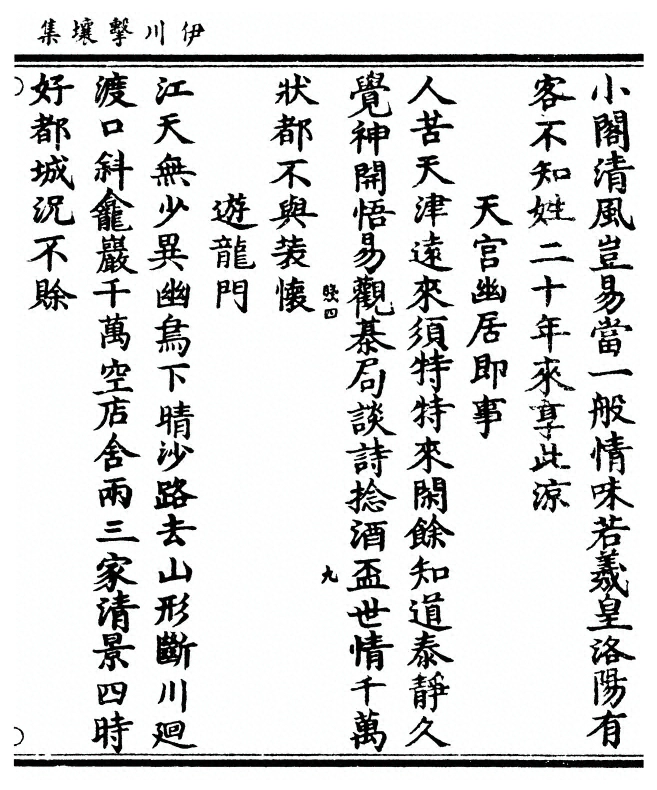 伊川擊壤集
小閣清風豈易當一般情味若羲皇洛陽有
客不知姓二十年來享此涼
天宮幽居即事
人苦天津遠來須特特來閑餘知道泰靜久
覺神開悟易觀棊局談詩捻酒盃世情千萬
狀都不與裝懷
遊龍門
江天無少異幽鳥下晴沙路去山形斷川廻
渡口斜龕巖千萬空店舍兩三家清景四時
好都城況不賒
四
九